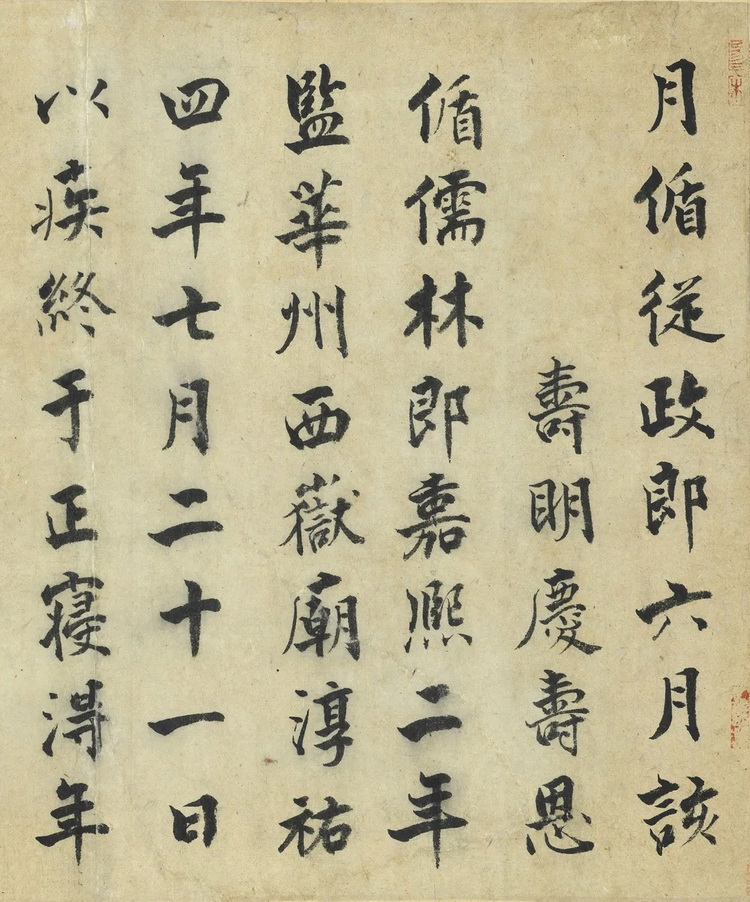 月循從政郎六月該
壽明慶壽恩
循儒林郎嘉熈二年
監華州西嶽廟淳祐
四年七月二十一日
以疾終于正寝淂年